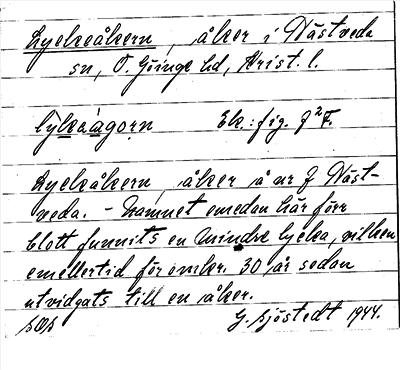 Lyckeåkern, åker i Nästveda
sn, Ö. Göinge hd, Krist. l.
lỳkeàgorn Ek.: fig. f 2 F.
Lyckeåkern, åker å nr 7 Näst-
veda. - Namnet emedan här förr
blott funnits en mindre lycka, vilken
emellertid för omkr. 30 år sedan
utvidgats till en åker.
G. Sjöstedt 1944.